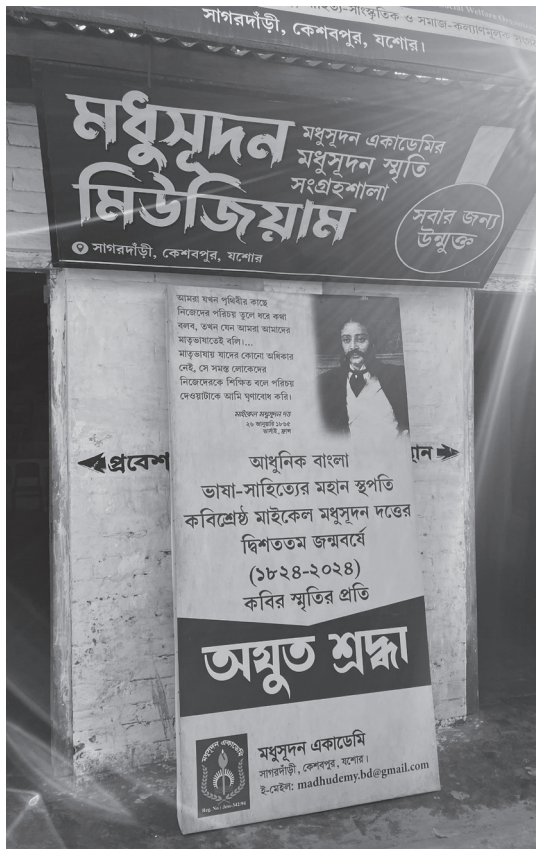 সাগরদাঁড়ী, কেশবপুর, যশোর।
মধুসূদন
মিউজিয়াম
মধুসূদন একাডেমির
মধুসূদন স্মৃতি
সংগ্রহশালা
সবার জন্য
উন্মুক্ত
সাগরদাঁড়ী, কেশবপুর, যশোর
আমরা যখন পৃথিবীর কাছে
নিজেদের পরিচয় তুলে ধরে কথা
বলব, তখন যেন আমরা আমাদের
মাতৃভাষাতেই বলি।...
মাতৃভাষায় যাদের কোনো অধিকার
নেই, সে সমস্ত লোকেদের
নিজেদেরকে শিক্ষিত বলে পরিচয়
দেওয়াটাকে আমি ঘৃণাবোধ করি।
মাইকেল মধুসূদন দত্ত
২৬ জানুয়ারি ১৮৬৫
ভার্সাই, ফ্রান্স
প্রবেশ
আধুনিক বাংলা
ভাষা-সাহিত্যের মহান স্থপতি
কবিশ্রেষ্ঠ মাইকেল মধুসূদন দত্তের
দ্বিশততম জন্মবর্ষে
(১৮২৪-২০২৪)
কবির স্মৃতির প্রতি
অযুত শ্রদ্ধা
মধুসূদন একাডেমি
মধুসূদন একাডেমি
সাগরদাঁড়ী, কেশবপুর, যশোর।
ই-মেইল: madhudemy.bd@gmail.com